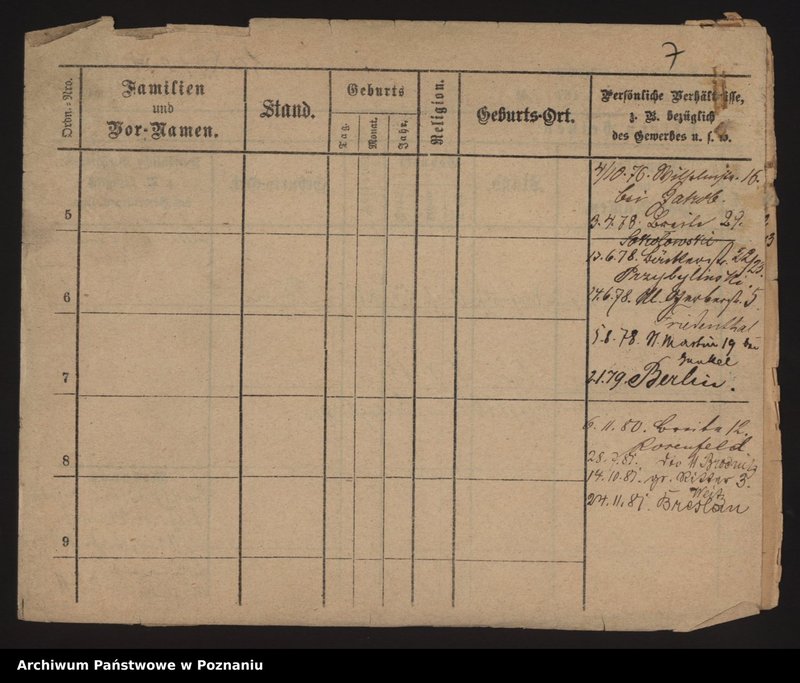 7
Ordn.-Nro.
Familien
und
Vor-Namen.
Stand.
Geburts
Tag.
Monat.
Jahr.
Religion.
Geburts-Ort.
Persönliche Verhältnisse,
z. B. bezüglich
des Gewerbes u. s. w.
4/10.76. Wilhelmstr. 16.
bei Jakob.
5
3.4.78. Breite 29.
Sokolowski
13.6.78. Bäckerstr. 22/23.
Przybylinski
6
17.6.78. Kl. Gerberstr. 5.
Friedenthal
5.8.78. St. Martin 19 bei
7
2.1.79. Berlin.
6.11.80. Breite 12.
Rosenfeld
8
28.3.81.
14.10.81. gr. Ritter 3.
24.11.81. Breslau
9
Archiwum Państwowe w Poznaniu